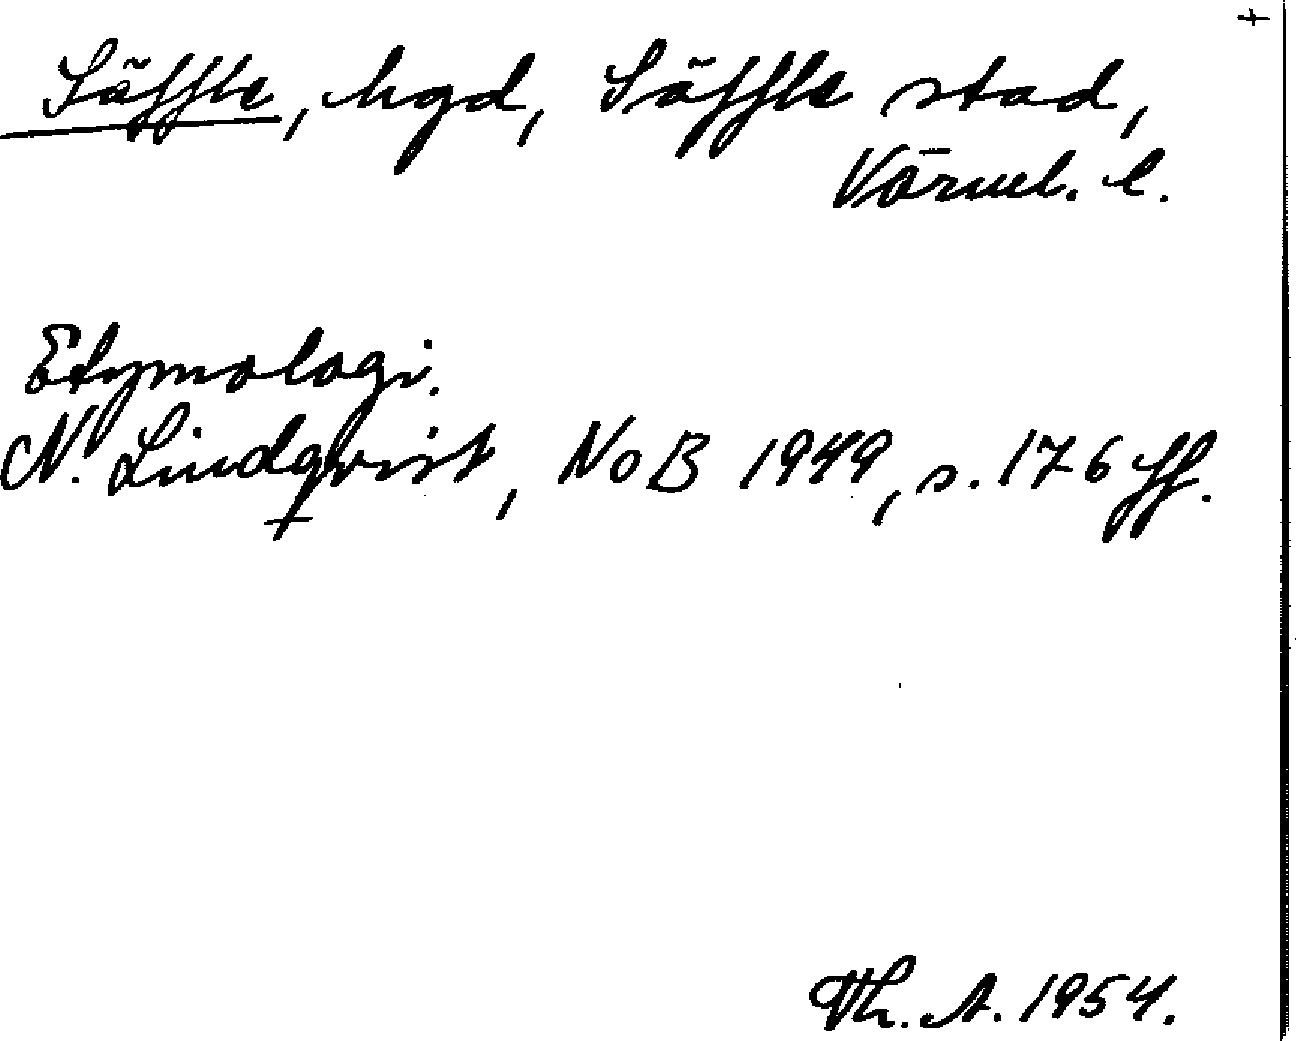 Säffle, hgd, Säffle stad,
Värml. l.
Etymologi.
N. Lindqvist, NoB 1949, s. 176 ff.
Th. A. 1954.